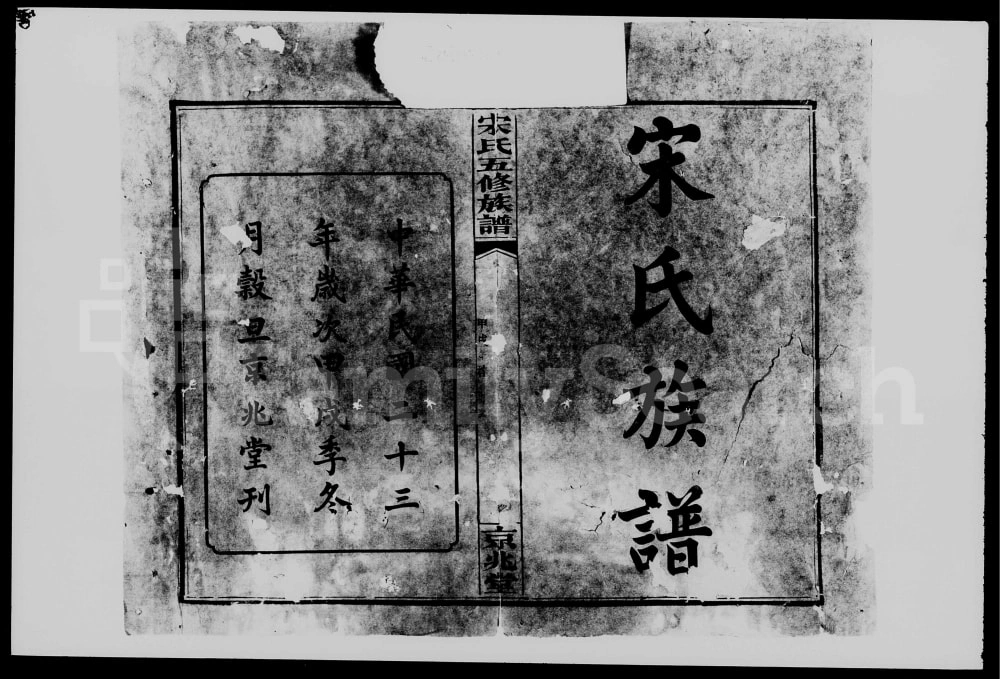 宋氏族譜
宋氏五修族譜
京兆堂
中華民國二十三
年歲次甲戌季冬
月穀旦京兆堂刊
FamilySearch